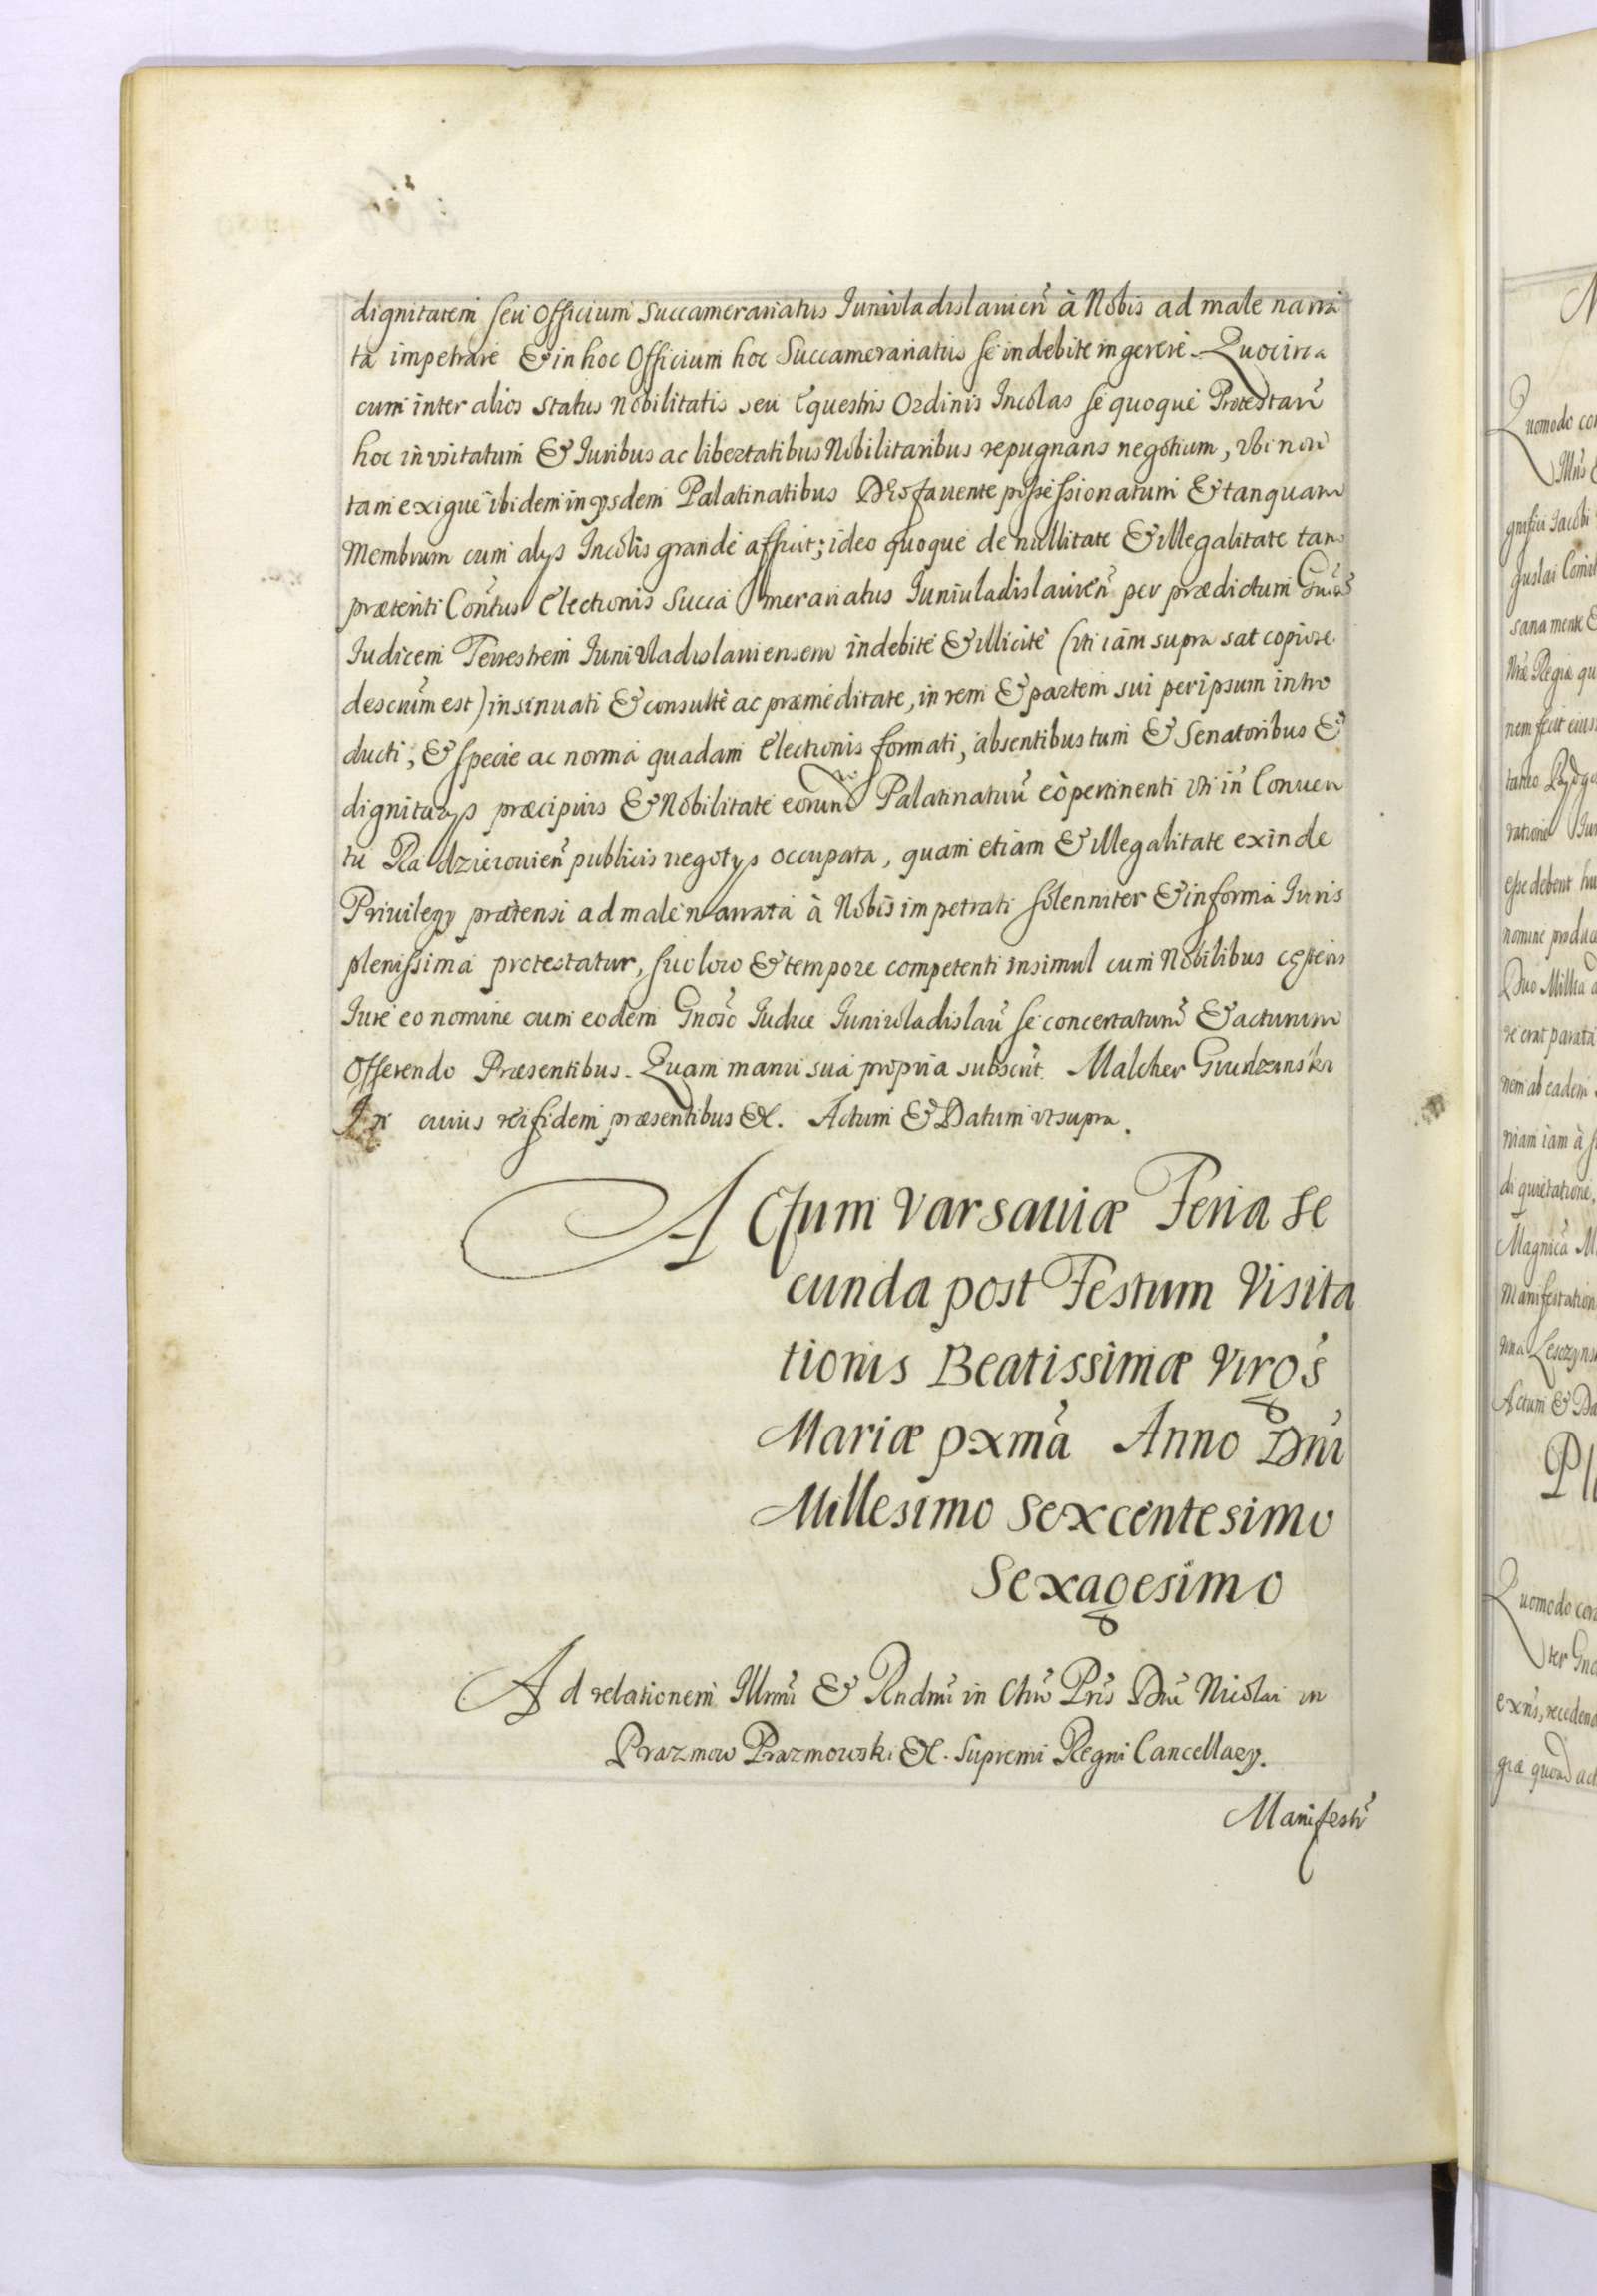 dignitatem seu Officium Succamerariatus Juniuladislauien̄ à Nobis ad male narra
ta impetrare & in hoc Officium hoc Succamerariatus se indebite ingerere. Quocirca
cum inter alios Status Nobilitatis seu Equestris Ordinis Incolas se quoque Protestan̄
hoc invsitatum & Iuribus ac libertatibus Nobilitaribus repugnans negotium, vbi non
tam exigue ibidem in ijsdem Palatinatibus Deo fauente possessionatum & tanquam
Membrum cum alijs Incolis grande afficit; ideo quoque de nullitate & illegalitate tam
prætenti Con̄tus Electionis Succa merariatus Juniuladislauien̄ per prædictum
Iudicem Terrestrem Juniuladislauiensem indebite & illicite (vti iam supra sat copiose
descrūm est) insinuati & consulte ac præmeditate, in rem & partem sui per ipsum intro
ducti, & specie ac norma quadam Electionis formati, absentibus tum & Senatoribus &
dignitarijs præcipuis & Nobilitate eorund Palatinatuū eò pertinenti vti in Conuen
tu Radzieiouien̄ publicis negotijs occupata, quam etiam & illegalitate exinde
Priuilegij prætensi ad male narrata à Nobis impetrati solenniter & in forma Iuris
plenissima protestatur, suo loco & tempore competenti insimul cum Nobilibus cæteris
Iure eo nomine cum eodem Gnoso Iudice Juniuladislau̅ se concertaturū & acturum
Offerendo Præsentibus. Quam manu sua propria subscrīt. Malcher Grudzinski
In cuius rei fidem præsentibus &c. Actum & Datum vt supra.
ACtum Varsauiæ Feria Se
cunda post Festum Visita
tionis Beatissimæ Virgs
Mariæ pxmā Anno Dnī
Millesimo Sexcentesimo
Sexagesimo
Ad relationem Illmī & Rndmī in Chrō Prīs Dnī Nicolai in
Prazmow Prazmowski &c. Supremi Regni Cancellarij.
Manifestī
Quomodo
Jacobi
sana mente
Regiæ
esse debent
nomine
Duo Millia
nem ab eadem
di quietatione,
Quomodo